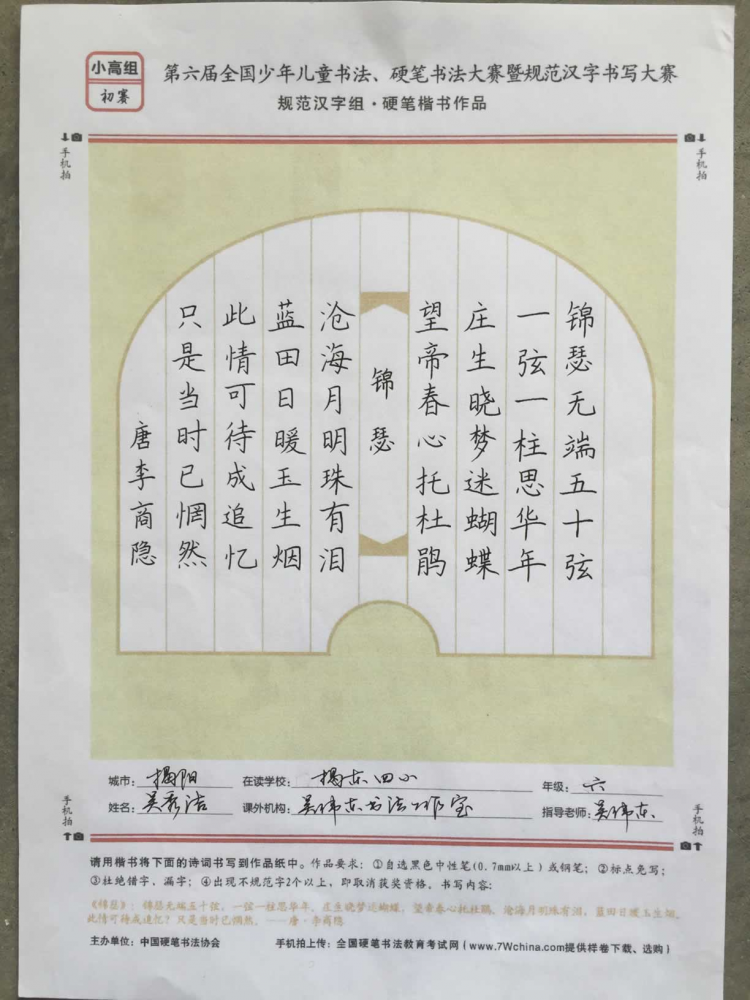 小高组
初赛
第六届全国少年儿童书法、硬笔书法大赛暨规范汉字书写大赛
规范汉字组·硬笔楷书作品
手机拍
手机拍
锦瑟无端五十弦
一弦一柱思华年
庄生晓梦迷蝴蝶
望帝春心托杜鹃
锦瑟
沧海月明珠有泪
蓝田日暖玉生烟
此情可待成追忆
只是当时已惘然
唐李商隐
城市：揭阳
在读学校：揭东四小
年级：六
姓名：吴秀洁
课外机构：吴伟东书法工作室
指导老师：吴伟东
手机拍
手机拍
请用楷书将下面的诗词书写到作品纸中。作品要求：①自选黑色中性笔(0.7mm以上)或钢笔；②标点免写；
③杜绝错字、漏字；④出现不规范字2个以上，即取消获奖资格。书写内容：
《锦瑟》：锦瑟无端五十弦，一弦一柱思华年。庄生晓梦迷蝴蝶，望帝春心托杜鹃。沧海月明珠有泪，蓝田日暖玉生烟。
此情可待成追忆？只是当时已惘然。——唐·李商隐
主办单位：中国硬笔书法协会
手机拍上传：全国硬笔书法教育考试网（www.7Wchina.com提供样卷下载、选购）